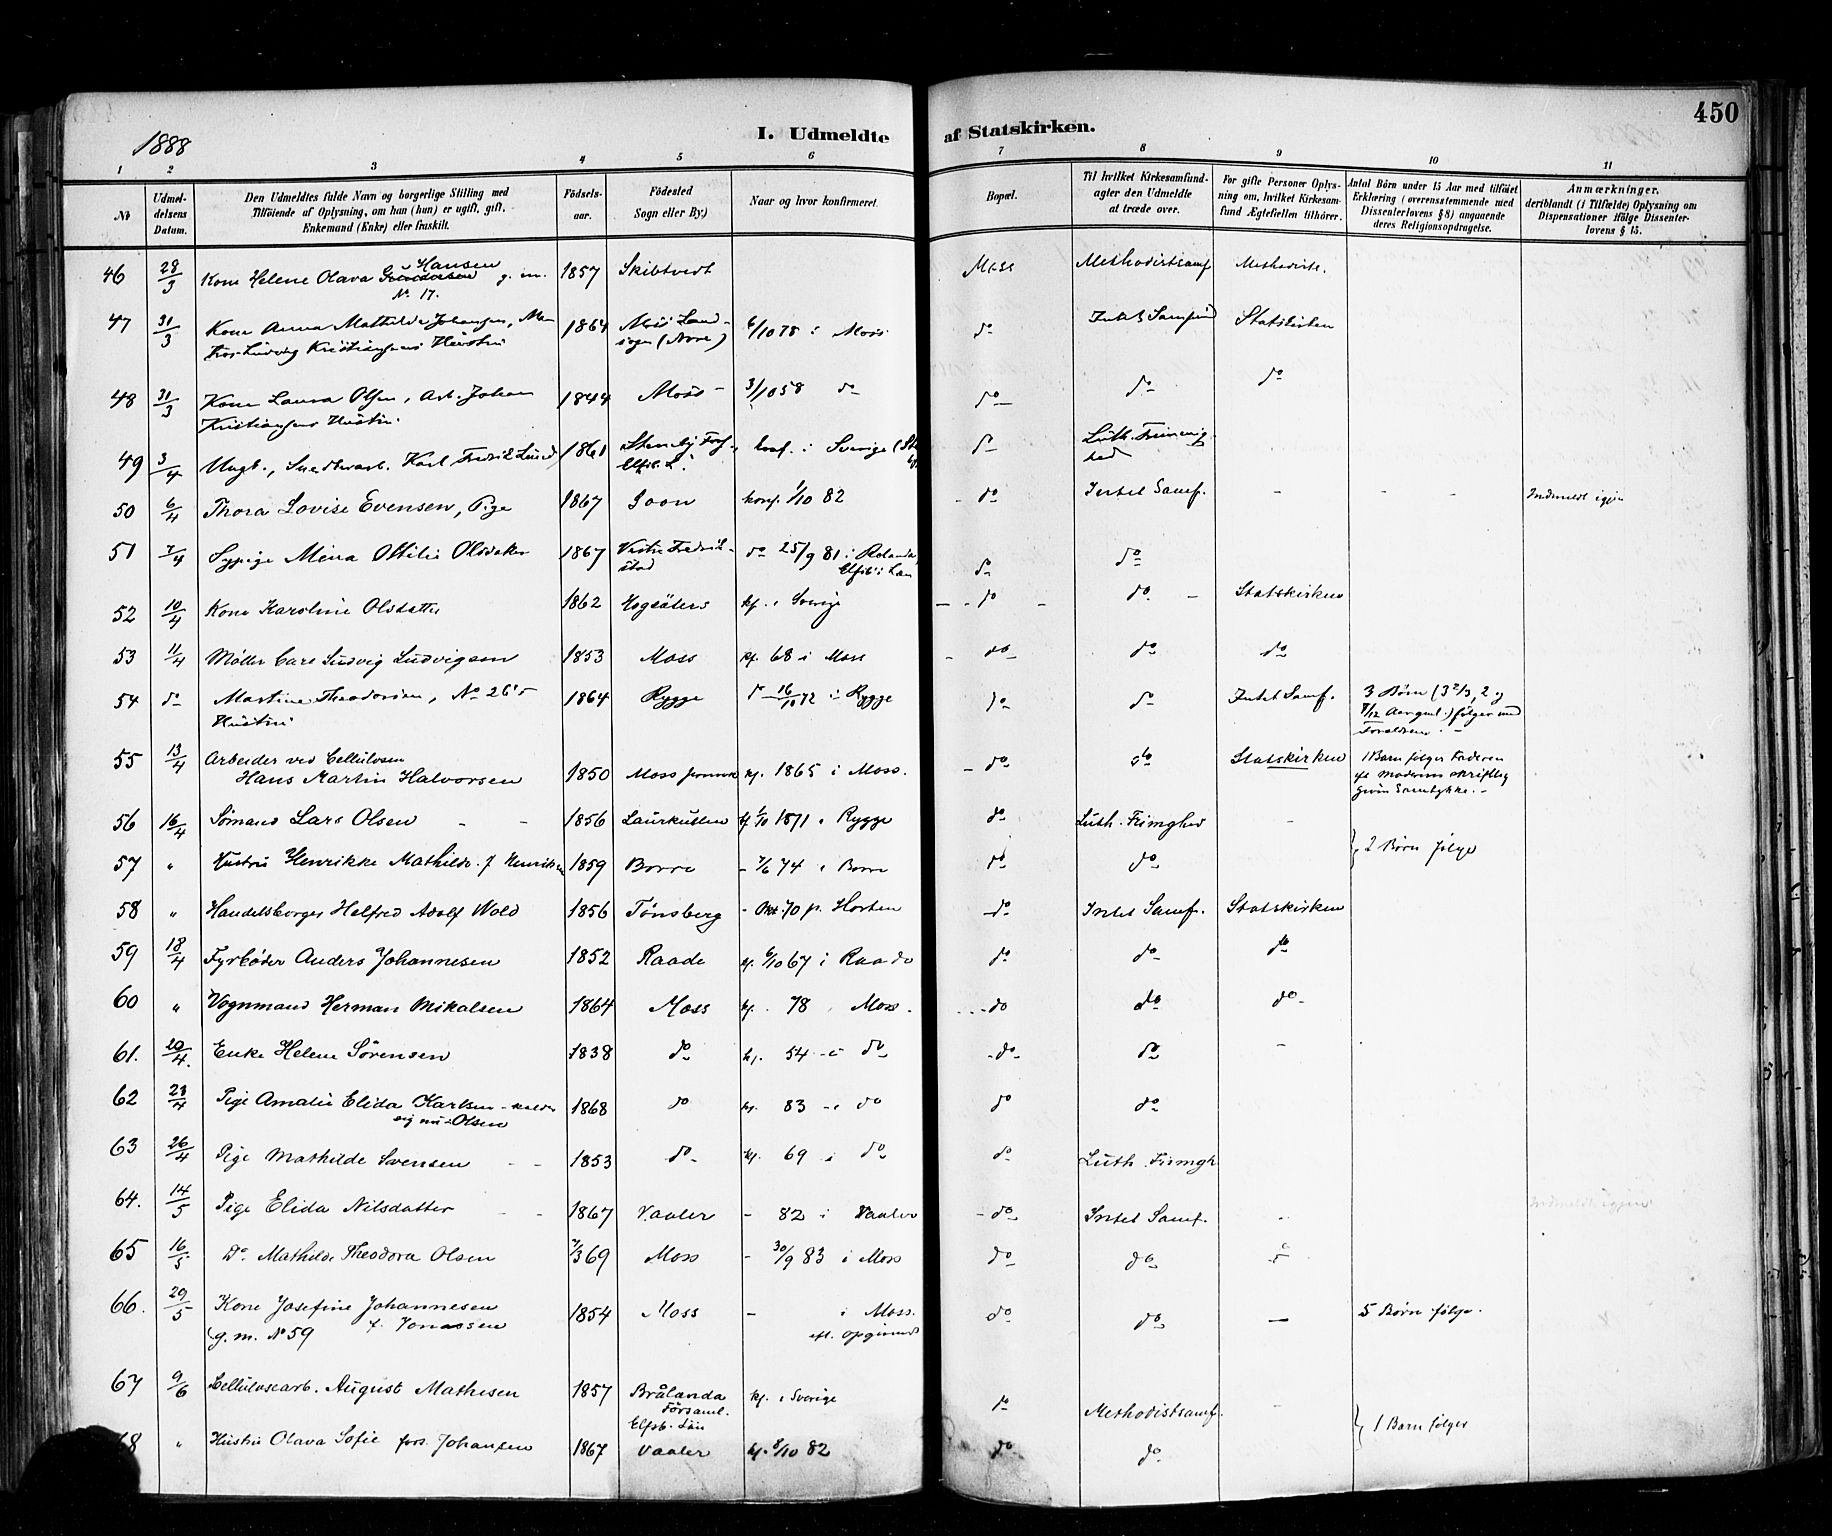 450
1888
I. Udmeldte af Statskirken.
1 2 3 4 5 6 7 8 9 10 11
No
Udmel-
delsens
Datum.
Den Udmeldtes fulde Navn og borgerlige Stilling med
Tilføiende af Oplysning, om han (hun) er ugift, gift,
Enkemand (Enke) eller fraskilt.
Fødsels-
aar.
Fødested
Sogn eller By)
Naar og hvor konfirmeret.
Bopæl.
Til hvilket Kirkesamfund
agter den Udmeldte
at træde over.
For gifte Personer Oplys-
ning om, hvilket Kirkesam-
fund Ægtefællen tilhører.
Antal Børn under 15 Aar med tilføiet
Erklæring (overensstemmende med
Dissenterlovens § 8) angaaende
deres Religionsopdragelse.
Anmærkninger,
deriblandt (i Tilfælde) Oplysning om
Dispensationer ifølge Dissenter-
lovens § 15.
46 28/3 Kone Helene Olava Hansen g. m. 1857 Skibtvedt Moss Methodistsamf Methodistk.
No 17.
47 31/3 Kone Anna Mathilde Johansen, 1864 Moss Land- 6/10 78 i Moss do Intet Samfund Statskirken
Ludvig Kristiansens Hustru sogn
48 31/3 Kone Laura Olsen, Arb. Johan 1844 Moss 3/10 58 do do do do
Kristiansens Hustru
49 3/4 Ungk., Karl Fredrik Lund 1861 konf. i Sverige do Luth. Frimenig-
hed
50 6/4 Thora Lovise Evensen, Pige 1867 Soon konf. 1/10 82 do Intet Samf. - - - Indmeldt igjen
51 7/4 Sypige Mina Ottilie Olsdatter 1867 Vestre Fredrik- do 25/9 81 i do do
stad Elfsb. Län
52 10/4 Kone Karoline Olsdatter 1862 Högsäters kf. i Sverige do do Statskirken
53 11/4 Møller Carl Ludvig Ludvigsen 1853 Moss kf. 68 i Moss do do do
54 do Martine Theodorsen, No 26's 1864 Rygge do 16/10 72 i Rygge do do Intet Samf. 3 Børn (3 2/3, 2 og
Hustru 8/12 Aar gml.) følger med
Forældrene.
55 13/4 Arbeider ved Cellulosen
Hans Martin Halvorsen 1850 Moss kf. 1865 i Moss. do do Statskirken 1 Barn følger Faderen
eft Moderens skriftlig
given Samtykke.
56 16/4 Sømand Lars Olsen 1856 Laurkullen kf 1/10 1871 i Rygge do Luth. Frimghed -
57 " Hustru Henrikke Mathilde f. Henriksen 1859 Borre - 7/6 74 i Borre do do } 2 Børn følger
58 " Handelsborger Helfred Adolf Wold 1856 Tønsberg - Okt. 70 p. Horten do Intet Samf. Statskirken
59 18/4 Fyrbøder Anders Johannesen 1852 Raade kf. 6/10 67 i Raade do do do
60 " Vognmand Herman Mikalsen 1864 Moss kf. 78 Moss. do do do
61. 20/4. Enke Helene Sørensen 1838 do kf. 54 - i do do do -
62 23/4 Pige Amalie Elida Karlsen - kalder 1868 do kf. 83 - i do do do
sig nu - Olsen
63 26/4 Pige Mathilde Svensen 1853 do kf. 69 i do do Luth. Frimgh
64. 14/5 Pige Elida Nilsdatter 1867 Vaaler - 82 i Vaaler do Intet Samf. - Indmeldt igjen
65 16/5 Do. Mathilde Theodora Olsen 7/3 69 Moss - 30/9 83 i Moss do do
66. 29/5 Kone Josefine Johannesen 1854 Moss - i Moss. do do - 5 Børn følge.
(g. m. No 59 f. Jonassen eft. opgivende
67 9/6 Cellulosearb. August Mathesen 1857 Brålanda kf. i Sverige do Methodistsamf. -
Församl.
Elfsb. Län } 1 Barn følger
68 " Hustru Olava Sofie fød. Johansen 1867 Vaaler kf. 8/10 82 do do